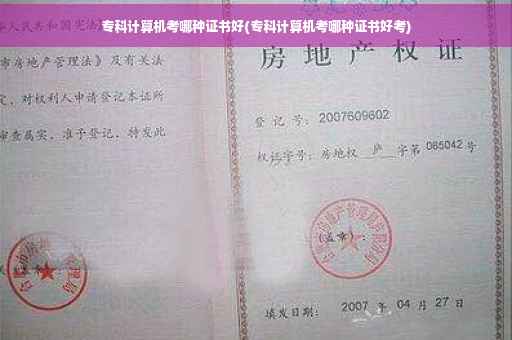 专科计算机考哪种证书好(专科计算机考哪种证书好考)
人民共和国宪法
市房地产管理法》及有关法
定，对权利人申请登记本证所
审查属实，准予登记，特发此
房地产权证
登记号：2007609602
权证字号：房地权 庐 字第 085042 号
(盖章)：
填发日期：2007 年 04 月 27 日